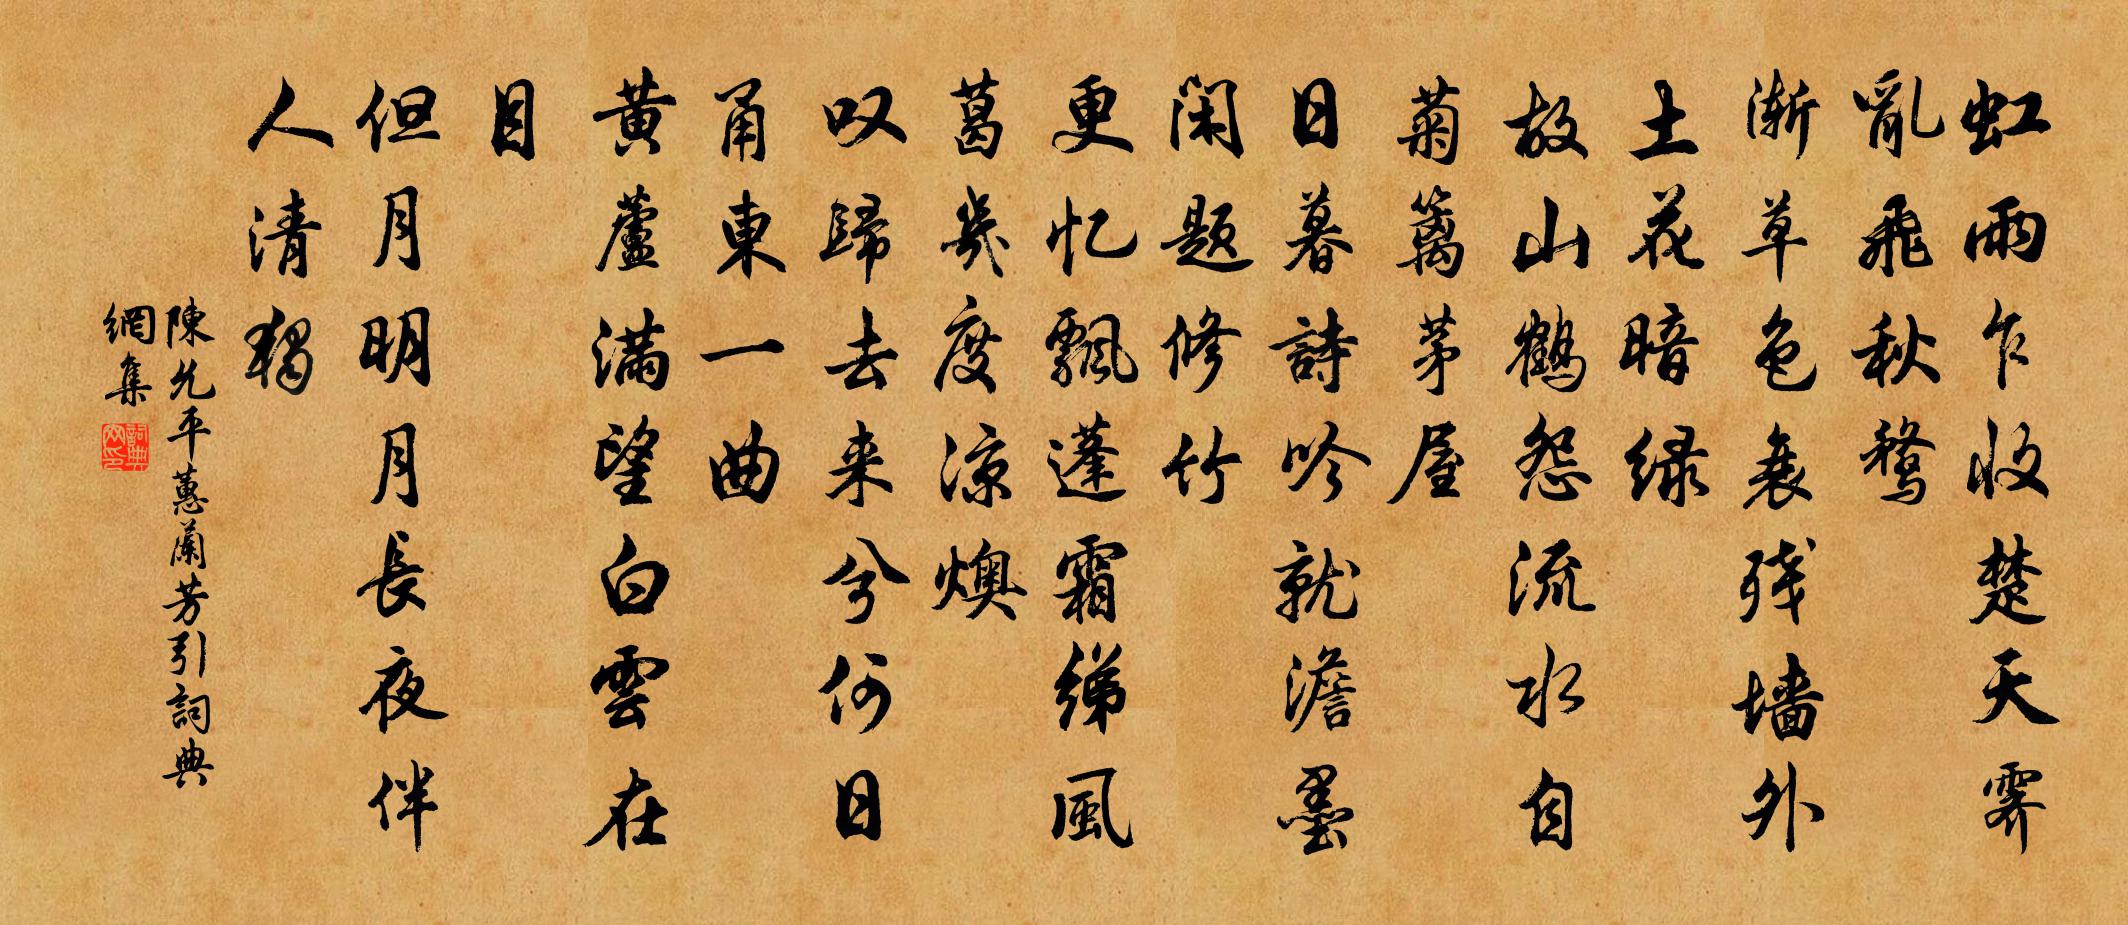 虹雨乍收楚天霽
亂飛秋鶩
漸草色衰残墙外
土花暗绿
故山鶴怨流水自
菊籬茅屋
日暮詩吟就澹墨
闲题修竹
更忆飄蓬霜绨風
葛幾度凉燠
叹歸去来兮何日
甬東一曲
黄蘆满望白雲在
目
但月明月長夜伴
人清獨
陳允平蕙蘭芳引詞典
網集
詞典網印